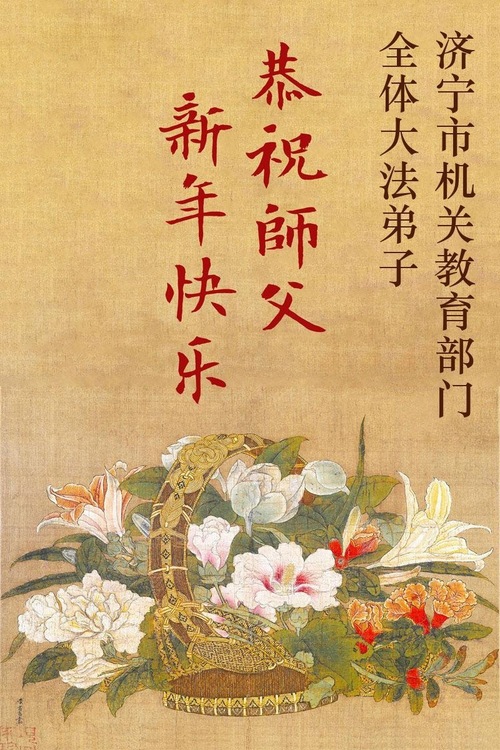 济宁市机关教育部门
全体大法弟子
恭祝師父
新年快乐